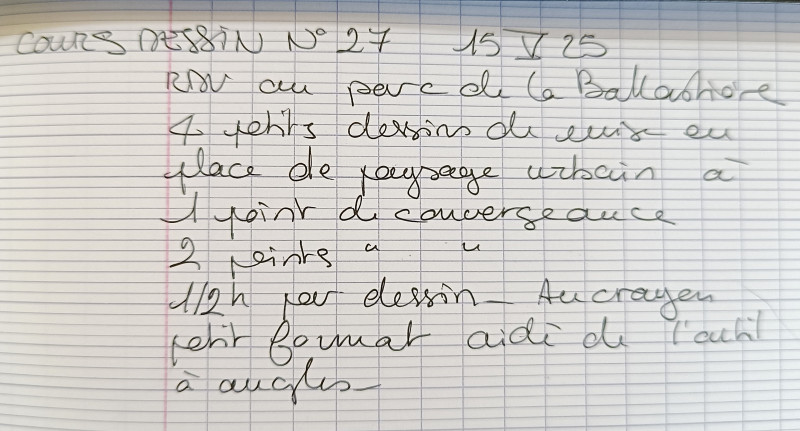 COURS DESSIN N° 27 15 V 25
RDV au parc de la Ballastière
4 petits dessins de mise en
place de paysage urbain à
1 point de convergeance
2 points " "
1/2h par dessin - Au crayon
petit format aidé de l'outil
à angles -